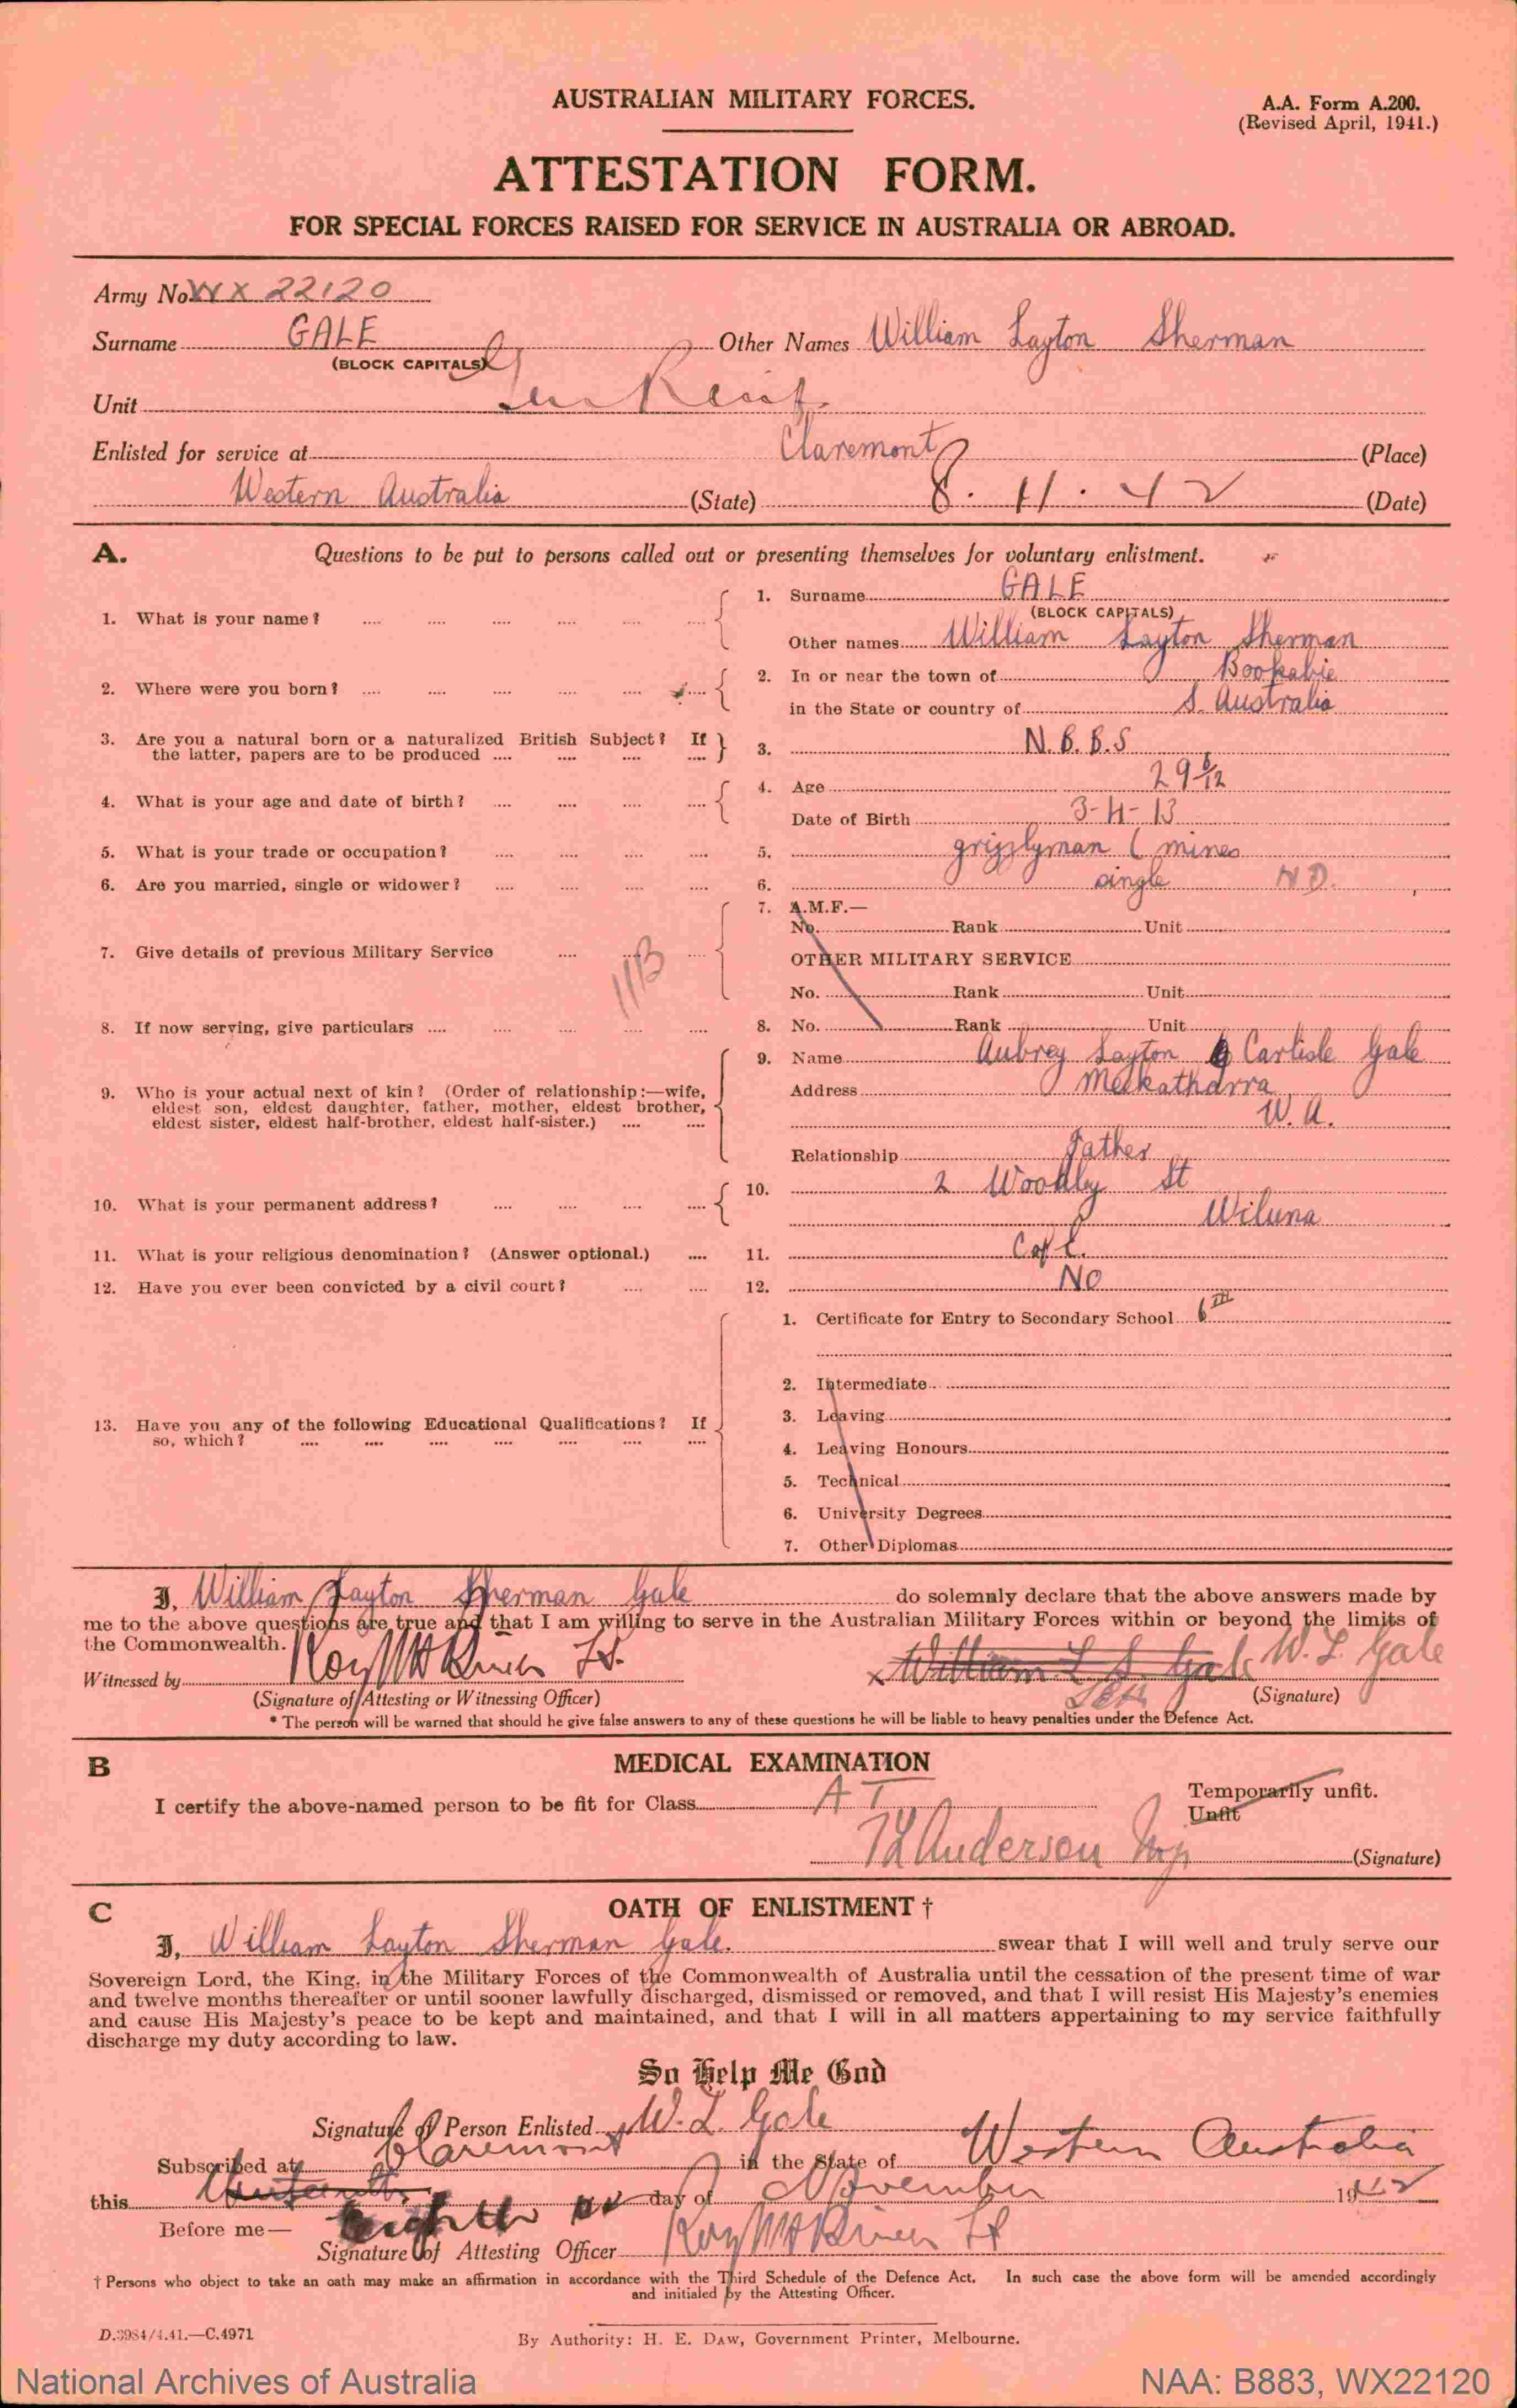 AUSTRALIAN MILITARY FORCES.
A.A. Form A.200.
(Revised April, 1941.)
ATTESTATION FORM.
FOR SPECIAL FORCES RAISED FOR SERVICE IN AUSTRALIA OR ABROAD.
Army No. WX 22120
Surname GALE Other Names William Layton Sherman
(BLOCK CAPITALS)
Unit Gen Reinf.
Enlisted for service at Claremont (Place)
Western Australia (State) 8.11.42 (Date)
A. Questions to be put to persons called out or presenting themselves for voluntary enlistment.
1. What is your name? .... 1. Surname GALE
(BLOCK CAPITALS)
Other names William Layton Sherman
2. Where were you born? .... 2. In or near the town of Bookabie
in the State or country of S. Australia
3. Are you a natural born or a naturalized British Subject? If
the latter, papers are to be produced .... 3. N.B.B.S
4. What is your age and date of birth? .... 4. Age 29 6/12
Date of Birth 3-4-13
5. What is your trade or occupation? .... 5. grizzlyman (mines
6. Are you married, single or widower? .... 6. single N.D.
7. Give details of previous Military Service .... 7. A.M.F.—
No. Rank Unit
OTHER MILITARY SERVICE
No. Rank Unit
11B
8. If now serving, give particulars .... 8. No. Rank Unit
9. Who is your actual next of kin? (Order of relationship:—wife,
eldest son, eldest daughter, father, mother, eldest brother,
eldest sister, eldest half-brother, eldest half-sister.) ....
9. Name Aubrey Layton Carlisle Gale
Address Meekatharra
W.A.
Relationship Father
10. What is your permanent address? .... 10. 2 Woodley St
Wiluna
11. What is your religious denomination? (Answer optional.) .... 11. C of E.
12. Have you ever been convicted by a civil court? .... 12. NO
13. Have you any of the following Educational Qualifications? If
so, which? ....
1. Certificate for Entry to Secondary School 6TH
2. Intermediate
3. Leaving
4. Leaving Honours
5. Technical
6. University Degrees
7. Other Diplomas
I, William Layton Sherman Gale do solemnly declare that the above answers made by
me to the above questions are true and that I am willing to serve in the Australian Military Forces within or beyond the limits of
the Commonwealth.
Witnessed by Lt. William L. S. Gale W. L. Gale
(Signature of Attesting or Witnessing Officer) (Signature)
* The person will be warned that should he give false answers to any of these questions he will be liable to heavy penalties under the Defence Act.
B MEDICAL EXAMINATION
I certify the above-named person to be fit for Class A I Temporarily unfit.
Unfit
Anderson Maj (Signature)
C OATH OF ENLISTMENT †
I, William Layton Sherman Gale. swear that I will well and truly serve our
Sovereign Lord, the King, in the Military Forces of the Commonwealth of Australia until the cessation of the present time of war
and twelve months thereafter or until sooner lawfully discharged, dismissed or removed, and that I will resist His Majesty's enemies
and cause His Majesty's peace to be kept and maintained, and that I will in all matters appertaining to my service faithfully
discharge my duty according to law.
So Help Me God
Signature of Person Enlisted W. L. Gale
Subscribed at Claremont in the State of Western Australia
this eighth day of November 1942
Before me—
Signature of Attesting Officer Lt
† Persons who object to take an oath may make an affirmation in accordance with the Third Schedule of the Defence Act. In such case the above form will be amended accordingly
and initialed by the Attesting Officer.
D.3984/4.41.—C.4971
By Authority: H. E. Daw, Government Printer, Melbourne.
National Archives of Australia
NAA: B883, WX22120